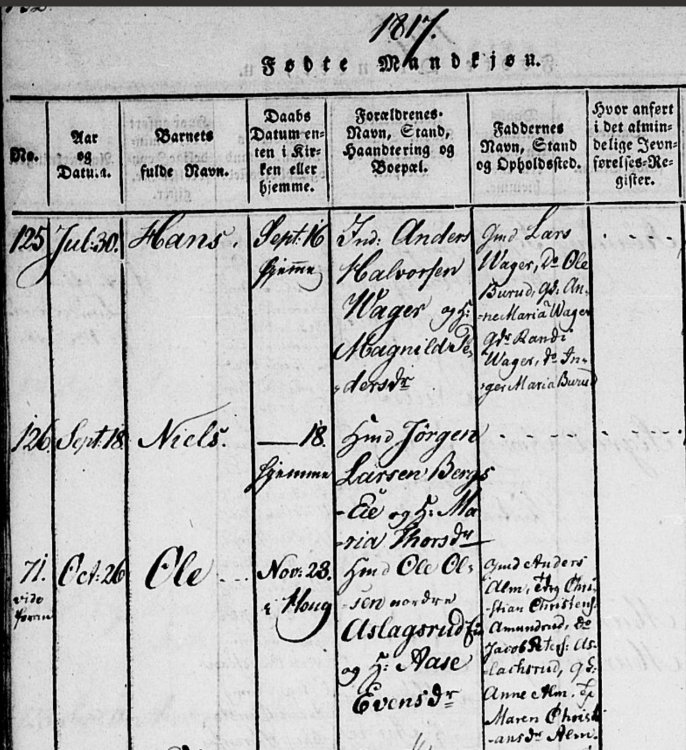 1817.
Fødte Mandkjøn.
No.
Aar
og
Datum.
Barnets
fulde Navn.
Daabs
Datum en-
ten i Kir-
ken eller
hjemme.
Forældrenes
Navn, Stand,
Haandtering og
Boepæl.
Faddernes
Navn, Stand
og Opholdssted.
Hvor anført
i det almin-
delige Jevn-
førelses-Re-
gister.
125
Jul: 30.
Hans.
Sept: 16
hjemme
Ind: Anders
Halvorsen
Wager og H:
Magnild Pe-
dersdr
Gmd Lars
Wager, do Ole
Burud, gd: An-
ne Maria Wager
gdr Randi
Wager, do In-
ger Maria Burud
126.
Sept. 18
Niels.
— 18.
hjemme
Hmd Jörgen
Larsen Bergs
-Eie og H: Ma
ria Thorsdr
71.
vide
Oct. 26
Ole
Nov: 23.
i Houg
Hmd Ole Ol-
sen nordre
Aslagsrud Eie
og H: Aase
Evensdr
Gmd Anders
Alm, Chri-
stian Christens:
Amundrud, do
Jacob Peters: As-
lachsrud, gd:
Anne Alm,
Maren Christi
ansdr Alm.